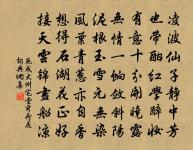 凌波仙子靜中芳
也帶酣紅學醉妝
有意十分開曉露
無情一餉斂斜陽
泥根玉雪元無染
風葉青蔥亦自香
想得石湖花正好
接天雲錦畫船涼
范成大州宅堂前荷花
詞典網集